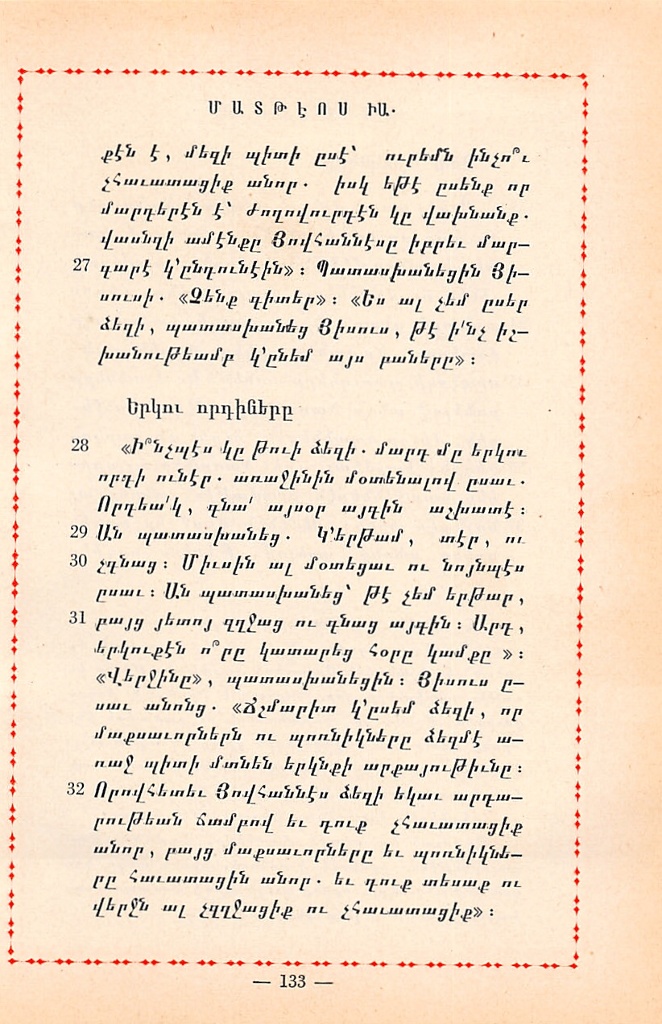 ՄԱՏԹԷՈՍ ԻԱ.
քէն է, մեզի պիտի ըսէ՝ ուրեմն ինչո՞ւ
չհաւատացիք անոր. իսկ եթէ ըսենք որ
մարդերէն է՝ ժողովուրդէն կը վախնանք.
վասնզի ամէնքը Յովհաննէսը իբրեւ մար–
27 գարէ կ՚ընդունէին»։ Պատասխանեցին Յի–
սուսի. «Չենք գիտեր»։ «Ես ալ չեմ ըսեր
ձեզի, պատասխանեց Յիսուս, թէ ի՛նչ իշ–
խանութեամբ կ՚ընեմ այս բաները»։
Երկու որդիները
28 «Ի՞նչպէս կը թուի ձեզի. մարդ մը երկու
որդի ունէր. առաջինին մօտենալով ըսաւ.
Որդեա՛կ, գնա՛ այսօր այգին աշխատէ։
29 Ան պատասխանեց. Կ՚երթամ, տէր, ու
30 չգնաց։ Միւսին ալ մօտեցաւ ու նոյնպէս
ըսաւ։ Ան պատասխանեց՝ թէ չեմ երթար,
31 բայց յետոյ զղջաց ու գնաց այգին։ Արդ,
երկուքէն ո՞րը կատարեց հօրը կամքը »։
«Վերջինը», պատասխանեցին։ Յիսուս ը–
սաւ անոնց. «Ճշմարիտ կ՚ըսեմ ձեզի, որ
մաքսաւորներն ու պոռնիկները ձեզմէ ա–
ռաջ պիտի մտնեն երկնքի արքայութիւնը։
32 Որովհետեւ Յովհաննէս ձեզի եկաւ արդա–
րութեան ճամբով եւ դուք չհաւատացիք
անոր, բայց մաքսաւորները եւ պոռնիկնե–
րը հաւատացին անոր. եւ դուք տեսաք ու
վերջն ալ չզղջացիք ու չհաւատացիք»։
— 133 —